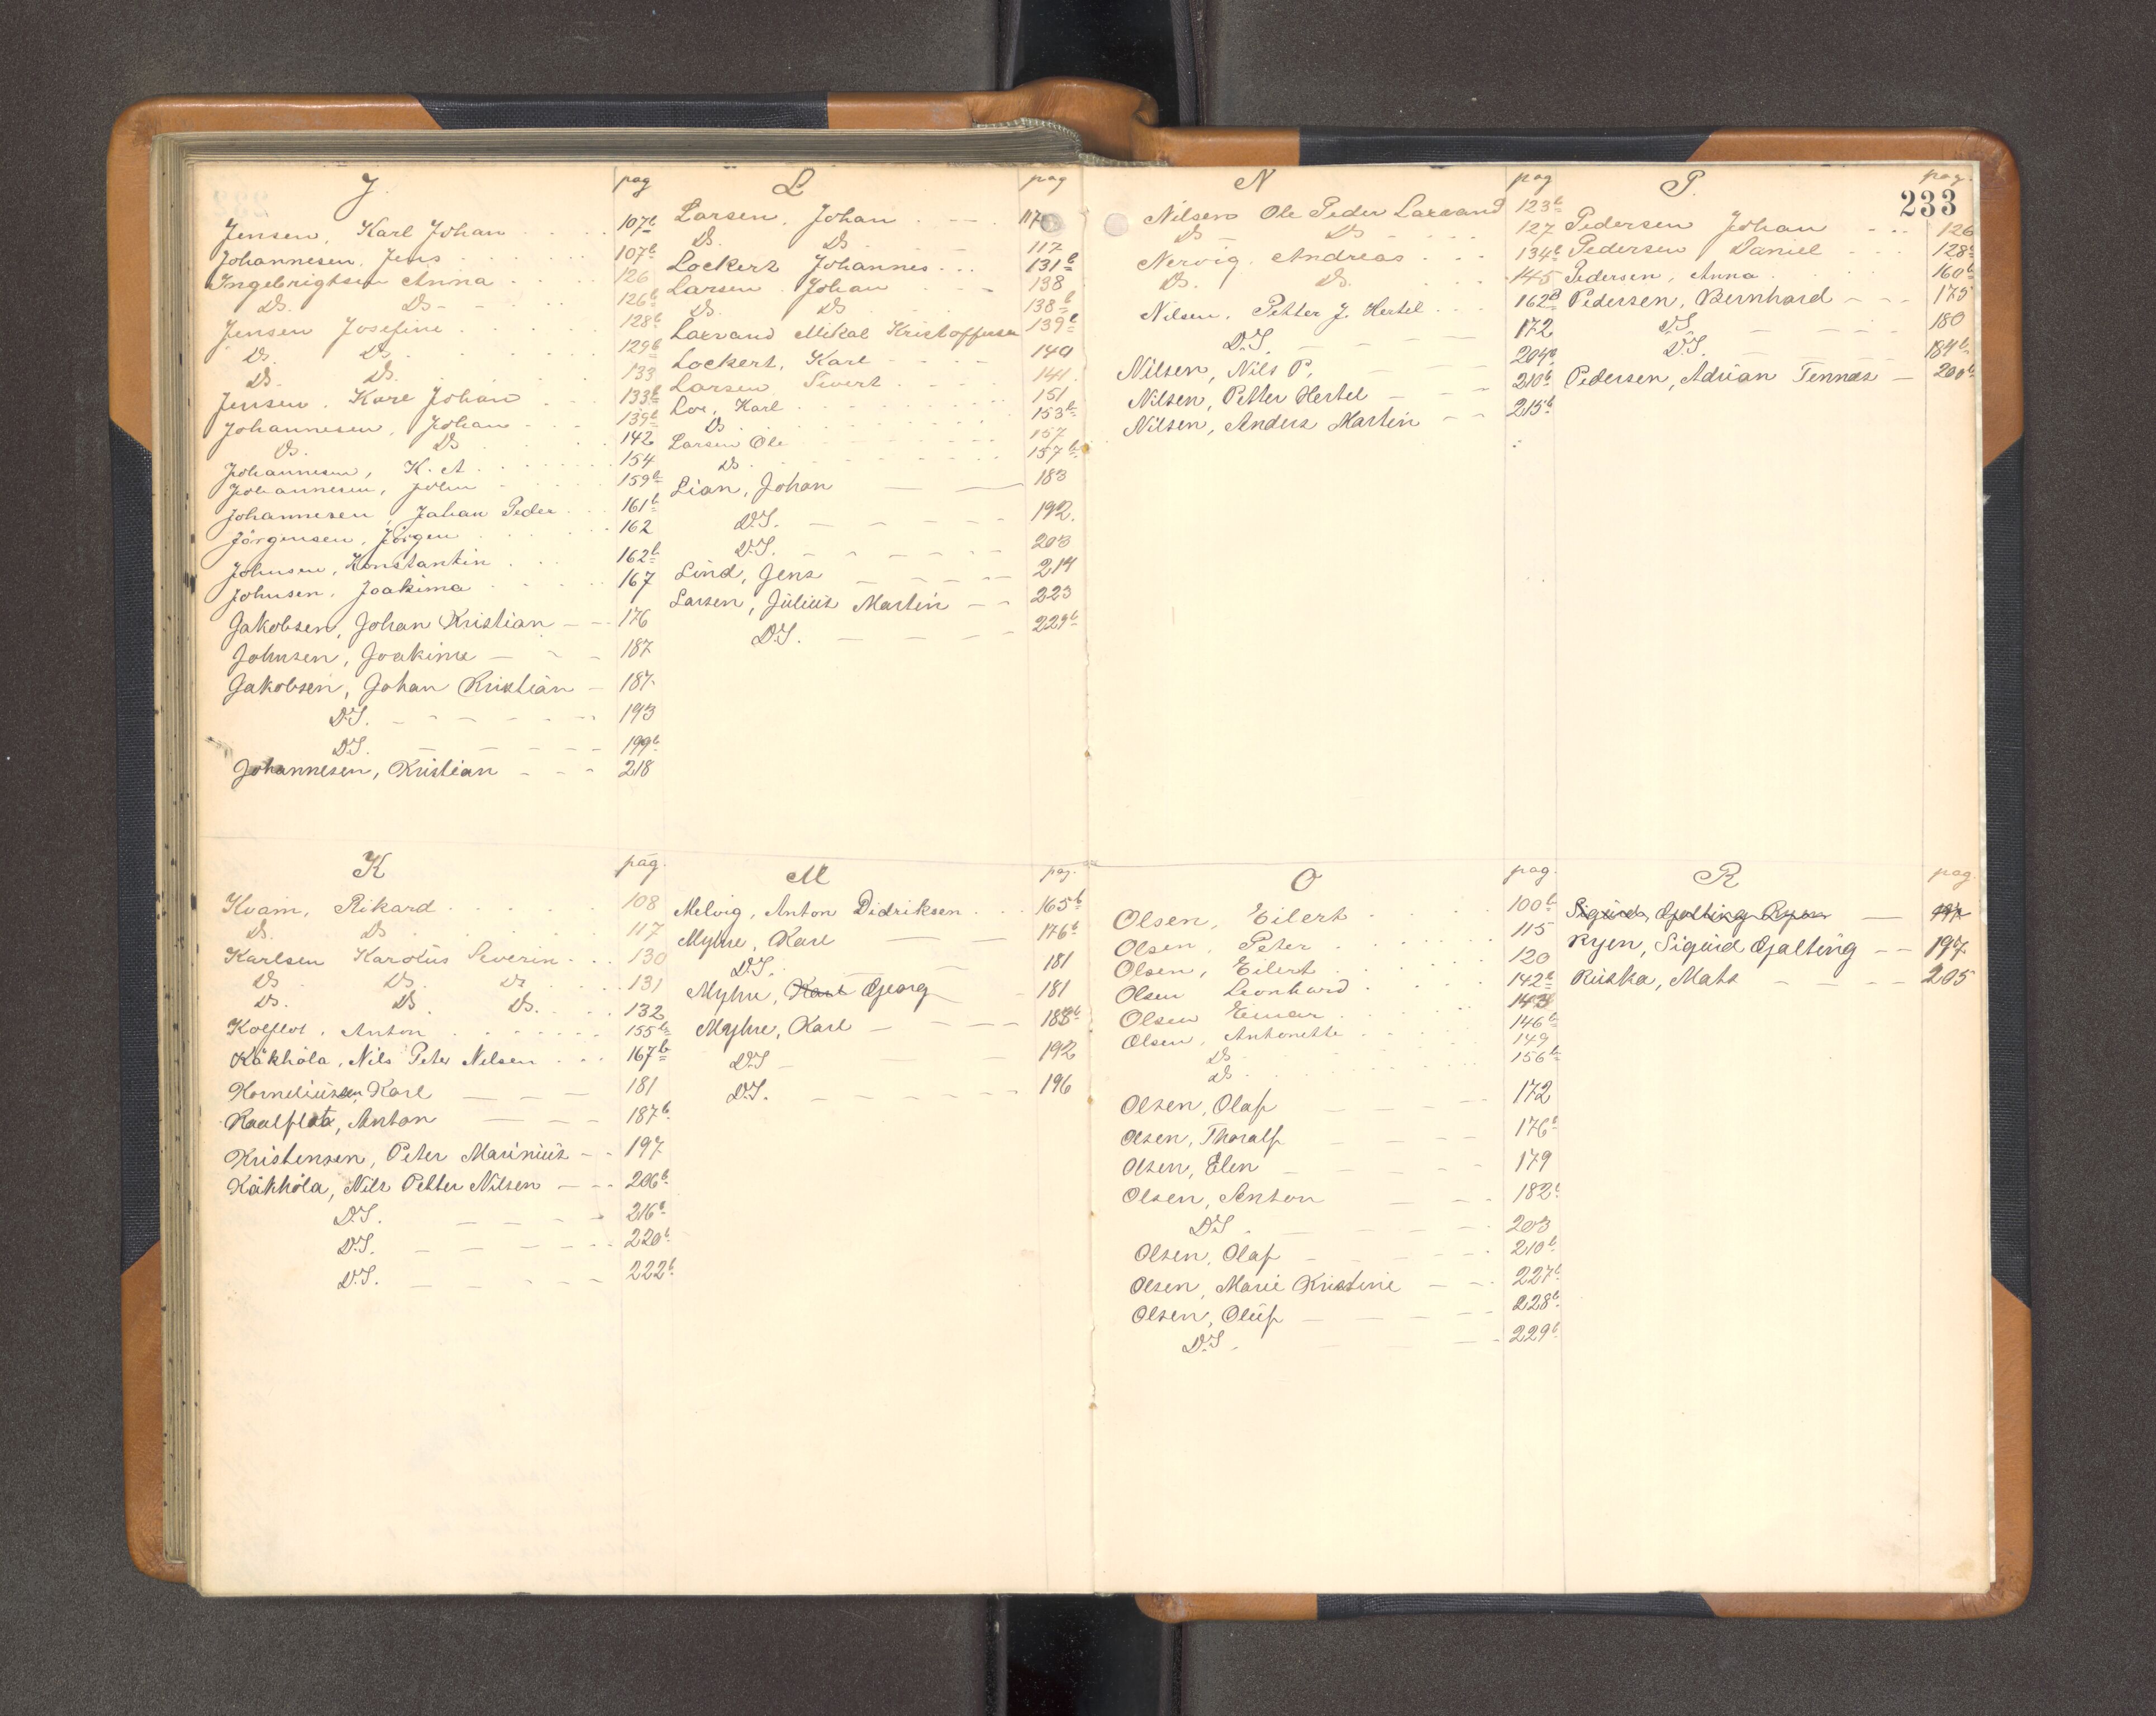 J. pag
Jensen, Karl Johan 107b
Johannesen, Jens 107b
Ingebrigtsen Anna 126
Do. Do 126b
Jensen Josefine 128b
Do. Do. 129b
Do. Do. 133
Jensen, Karl Johan 133b
Johannesen, Johan 139b
Do. Do 142
Johannesen, K. A. 154
Johannesen, John 159b
Johannesen, Johan Peder 161b
Jörgensen, Jörgen 162
Johnsen, Konstantin 162b
Johnsen, Joakima 167
Jakobsen, Johan Kristian 176
Johnsen, Joakima 187
Jakobsen, Johan Kristian 187
D.S. 193
D.S. 199b
Johannesen, Kristian 218
K pag.
Kvam, Rikard 108
Do. Do 117
Karlsen Karolus Severin 130
Do Do. Do 131
Do. Do Do. 132
Kolflot, Anton 155b
Kåkhola, Nils Peter Nilsen 167b
Korneliussen, Karl 181
Kaalflata, Anton 187b
Kristensen, Peter Marinius 197
Kåkhola, Nils Petter Nilsen 206b
D.S. 216b
D.S. 220b
D.S. 222b
L pag
Larsen, Johan 117
Do. Do 112
Lockert Johannes 131b
Larsen Johan 138
Do. Do 138b
Larvand Mikal Kristoffersen 139b
Lockert, Karl 140
Larsen Sivert 141
Loe, Karl 151
Do 153b
Larsen Ole 157
Do 157b
Lian, Johan 183
D.S. 192.
D.S. 203
Lind, Jens 214
Larsen, Julius Martin 223
D.S. 229b
M pag.
Melvig, Anton Didriksen 165b
Myhre, Karl 176b
D.S. 181
Myhre, Karl Georg 181
Myhre, Karl 188b
D.S 192
D.S. 196
N pag
Nilsen Ole Peder Larvand 123b
Do Do 127
Nervig, Andreas 134b
Do. Do. 145
Nilsen, Petter J. Hertel 162b
D.S. 172
Nilsen, Nils P. 204b
Nilsen, Petter Hertel 210b
Nilsen, Anders Martin 215b
O pag.
Olsen, Eilert 100b
Olsen, Peter 115
Olsen, Eilert 120
Olsen Leonhard 142b
Olsen Einar 143
Olsen, Antonette 146b
Do 149
Do 156b
Olsen, Olaf 172
Olsen, Thoralf 176b
Olsen, Elen 179
Olsen, Anton 182b
D.S. 203
Olsen, Olaf 210b
Olsen, Marie Kristine 227b
Olsen, Oluf 228b
D.S. 229b
P. pag.
233
Pedersen Johan 126
Pedersen Daniel 128b
Pedersen, Anna 160b
Pedersen, Bernhard 175
D.S. 180
D.S. 184b
Pedersen, Adrian Tennæs 200b
R pag.
Sigurd, Gjalting Ryen 197
Ryen, Sigurd Gjalting 197
Ruska, Mats 205